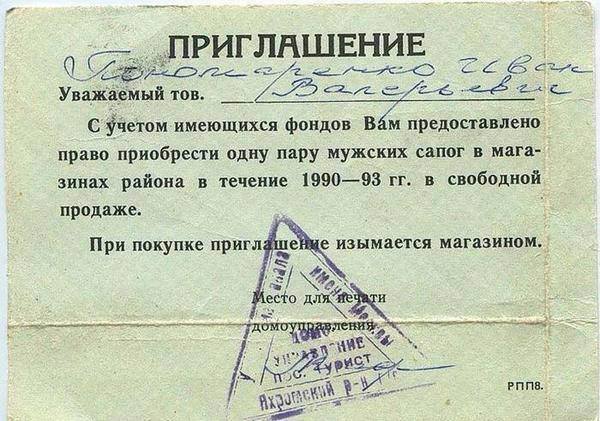 ПРИГЛАШЕНИЕ
Пономаренко Иван
Уважаемый тов. Валерьевич
С учетом имеющихся фондов Вам предоставлено
право приобрести одну пару мужских сапог в мага-
зинах района в течение 1990—93 гг. в свободной
продаже.
При покупке приглашение изымается магазином.
Место для печати
домоуправления
имени Москвы
ДОМО-
УПРАВЛЕНИЕ
ПОС. ТУРИСТ
Яхромский р-н
РПП8.